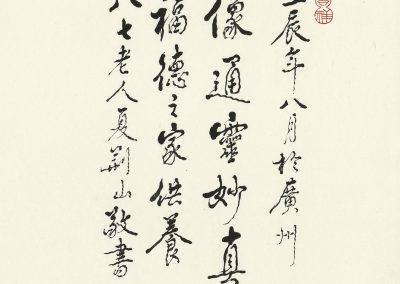 辰年八月於廣州
像通靈妙真
福德之家供養
八七老人夏荊山敬書